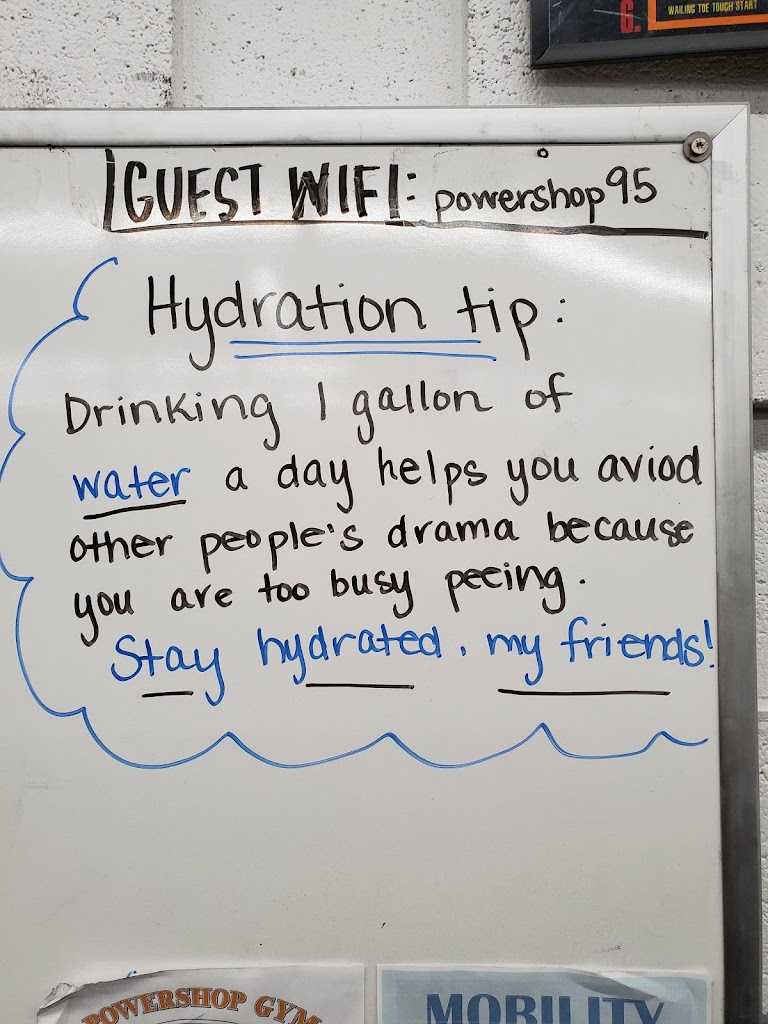 6. WAILING TOE TOUCH START
GUEST WIFI: powershop95
Hydration tip:
Drinking 1 gallon of
water a day helps you aviod
other people's drama because
you are too busy peeing.
Stay hydrated, my friends!
POWERSHOP GYM
MOBILITY